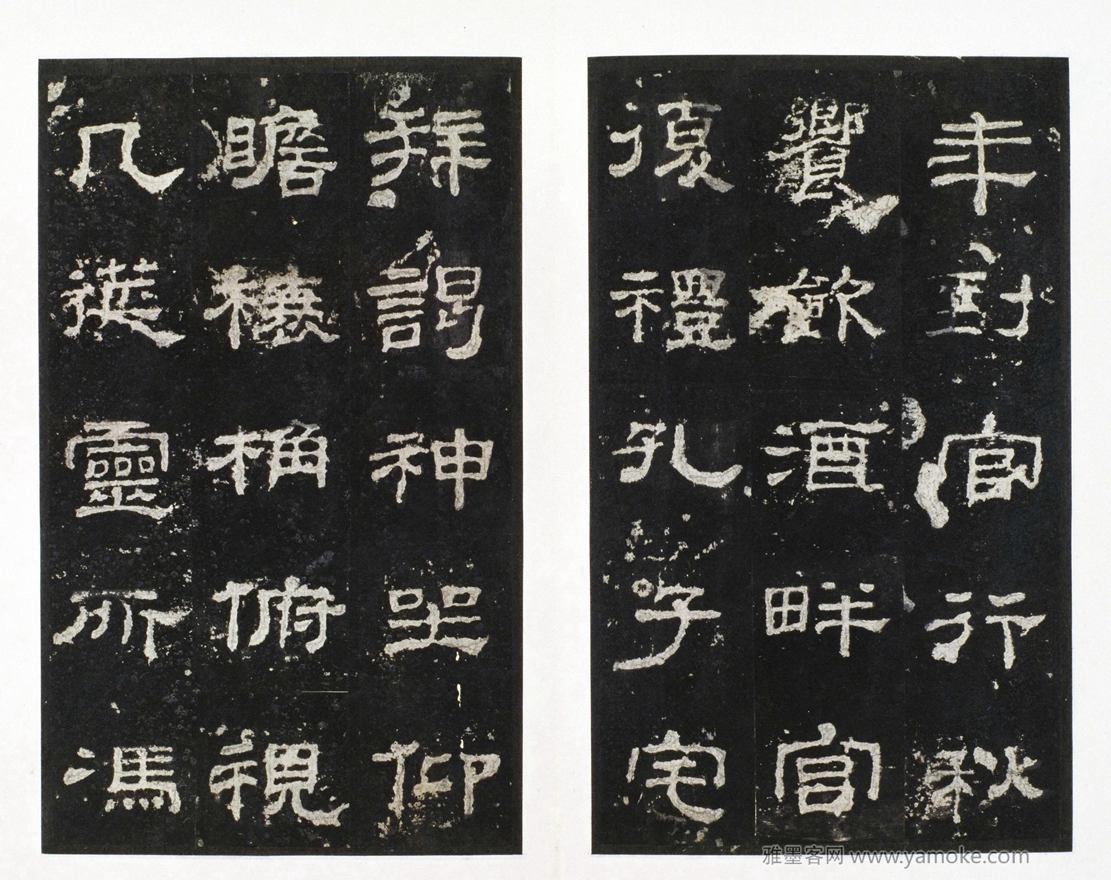 年到官行秋
饗飲酒畔宮
復禮孔子宅
拜謁神坐仰
瞻榱桷俯視
几筵靈所馮
雅墨客网 www.yamoke.com